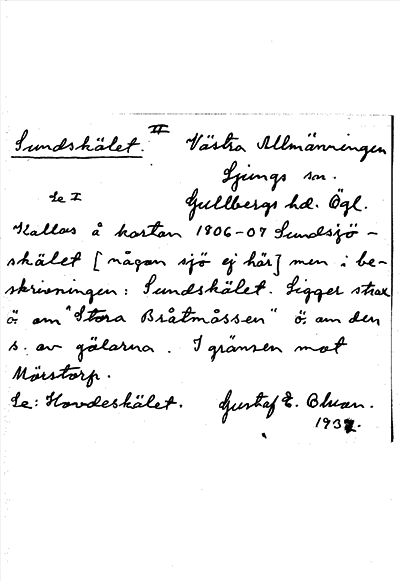 Sundskälet. II Västra Allmänningen
Ljungs sn.
Se I Gullbergs hd. Ögl.
Kallas å kartan 1806-07 Sundsjö-
skälet [någon sjö ej här] men i be-
skrivningen: Sundskälet. Ligger strax
ö. om "Stora Bråtmåssen" ö. om den
s. av gölarna. I gränsen mot
Mörstorp.
Se: Hovdeskälet. Gustaf E. Bluan.
193